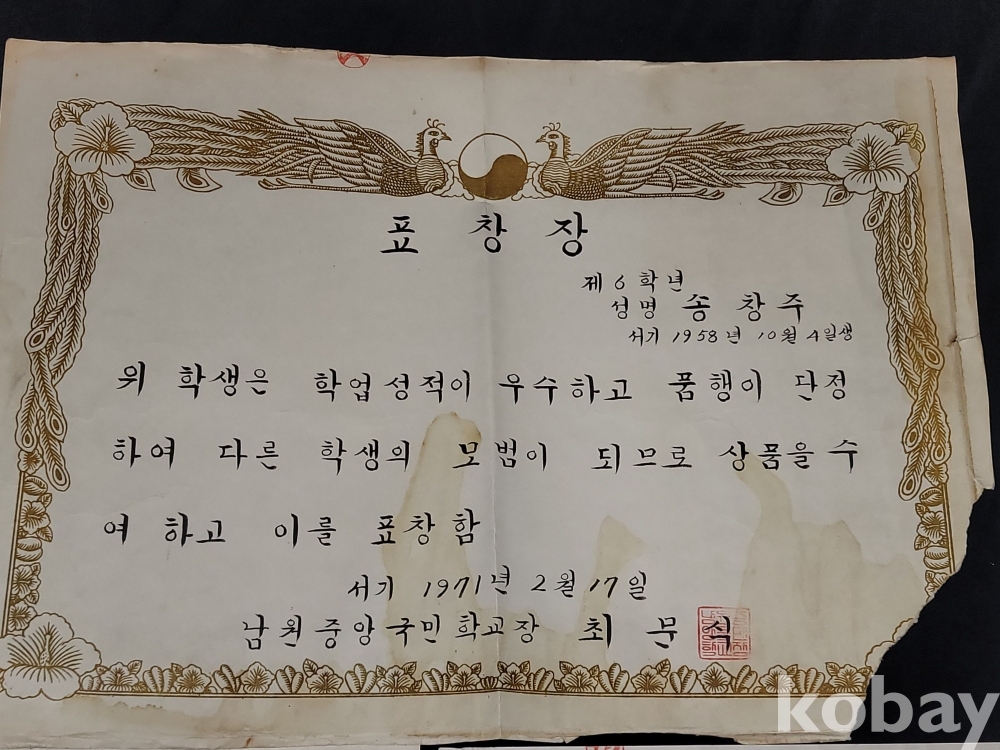 표 창 장
제 6 학 년
성 명 송 창 주
서기 1958년 10월 4일생
위 학생은 학업성적이 우수하고 품행이 단정
하여 다른 학생의 모범이 되므로 상품을 수
여 하고 이를 표창함
서기 1971년 2월 17일
남원중앙국민학교장 최 문 식
kobay